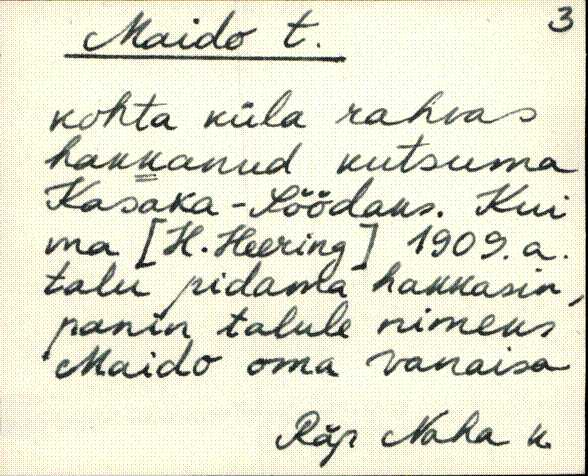 Maido t.
3
kohta küla rahvas
hakkanud kutsuma
Kasaka-Söödaks. Kui
ma [H. Heering] 1909. a.
talu pidama hakkasin,
panin talule nimeks
Maido oma vanaisa
Räp Naha k.